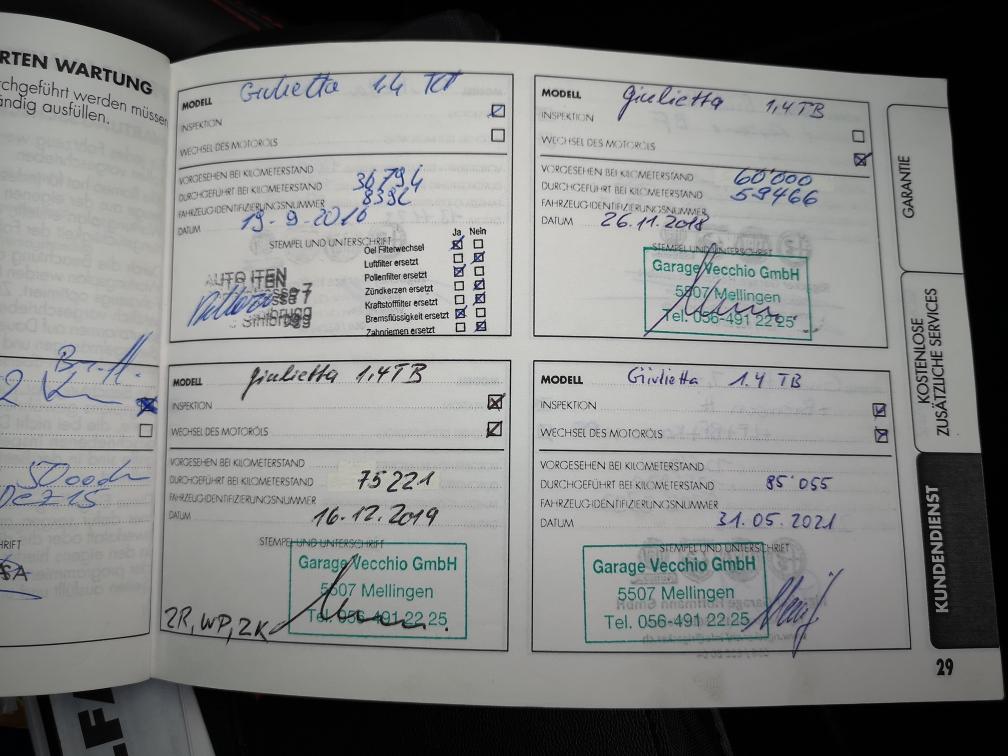 RTEN WARTUNG
chgeführt werden müssen
ändig ausfüllen.
50000
Dez 15
RIFT
MODELL Giulietta 1,4 TCT
INSPEKTION
WECHSEL DES MOTORÖLS
VORGESEHEN BEI KILOMETERSTAND
DURCHGEFÜHRT BEI KILOMETERSTAND 36794
FAHRZEUGIDENTIFIZIERUNGSNUMMER 8392
DATUM 19-9-2016
STEMPEL UND UNTERSCHRIFT
Ja Nein
Oel Filterwechsel
Luftfilter ersetzt
Pollenfilter ersetzt
Zündkerzen ersetzt
Kraftstofffilter ersetzt
Bremsflüssigkeit ersetzt
Zahnriemen ersetzt
AUTO ITEN
MODELL Giulietta 1,4 TB
INSPEKTION
WECHSEL DES MOTORÖLS
VORGESEHEN BEI KILOMETERSTAND 60'000
DURCHGEFÜHRT BEI KILOMETERSTAND 59466
FAHRZEUGIDENTIFIZIERUNGSNUMMER
DATUM 26.11.2018
STEMPEL UND UNTERSCHRIFT
Garage Vecchio GmbH
5507 Mellingen
Tel. 056-491 22 25
MODELL Giulietta 1,4 TB
INSPEKTION
WECHSEL DES MOTORÖLS
VORGESEHEN BEI KILOMETERSTAND
DURCHGEFÜHRT BEI KILOMETERSTAND 75221
FAHRZEUGIDENTIFIZIERUNGSNUMMER
DATUM 16.12.2019
STEMPEL UND UNTERSCHRIFT
Garage Vecchio GmbH
5507 Mellingen
Tel. 056-491 22 25
ZR, WP, ZK
MODELL Giulietta 1.4 TB
INSPEKTION
WECHSEL DES MOTORÖLS
VORGESEHEN BEI KILOMETERSTAND
DURCHGEFÜHRT BEI KILOMETERSTAND 85'055
FAHRZEUGIDENTIFIZIERUNGSNUMMER
DATUM 31.05.2021
STEMPEL UND UNTERSCHRIFT
Garage Vecchio GmbH
5507 Mellingen
Tel. 056-491 22 25
GARANTIE
KOSTENLOSE
ZUSÄTZLICHE SERVICES
KUNDENDIENST
29